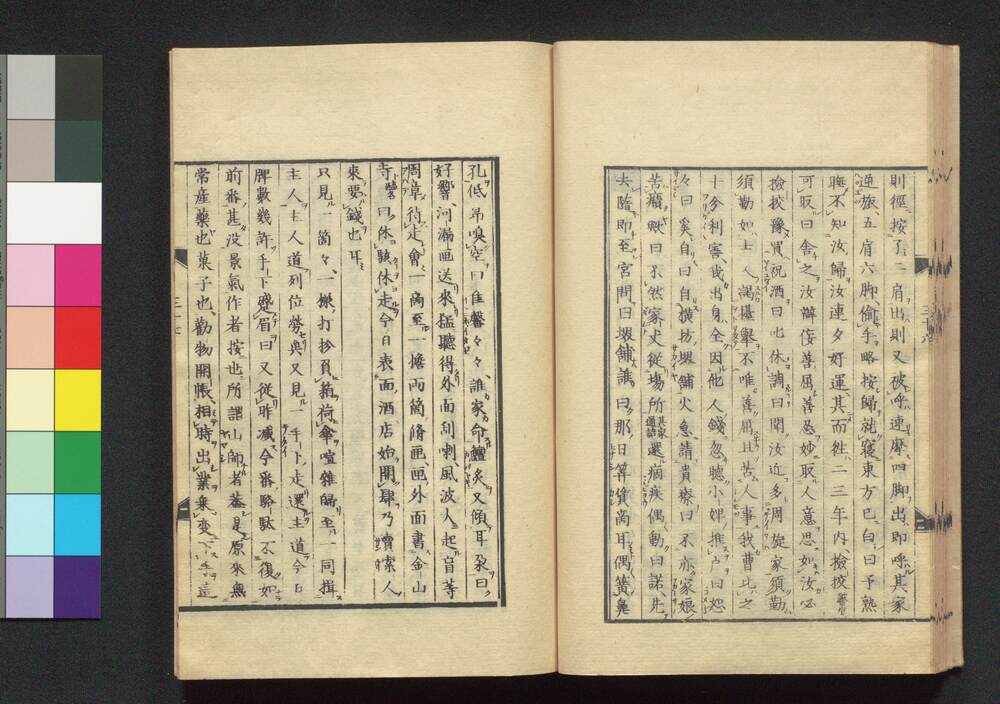 則徑按了二肩出則又被呼速摩四脚出即呼其家
逆旅五肩六脚偷手略按歸就寢東方已白曰予熟
睡不知汝歸汝連夕好運其而往二三年內撿挍
可取曰舍之汝辦侫善屈善惡妙取人意思如汝必
撿挍豫買祝酒曰叱休調曰聞汝近多周旋家須勤
須勤如士人謁堪舉不唯善屈且苦人事我曹比之
十分利害我出身全因他人錢忽聽小婢推戶曰恕
々曰奚自曰自橫坊堺鋪火急請貴療曰不亦家娘
苦癪歟曰不然家犬從塲所還病疾偶動曰諾先
去隨即至宮問曰堺鋪誰曰那日算貸商耳偶黃臭
孔低吊嗅空曰佳馨々々誰家命鱣炙又傾耳朶曰
好響河漏匣送來猛聽得外面刮喇風波人起盲等
周章待走會一商至一擔兩箇脩匣匣外面書金山
寺醫曰休駭休走今日表面酒店始開肆乃賣嗦人
來要錢也耳
只見一箇々一擻打抄頁箱荷傘喧雜歸至一同揖
主人主人道列位勞矣又見一手下走還主道今日
脾數幾許手下蹙眉曰又從昨减今番略駄不復如
前番甚沒景氣作者按也所謂山師者蓋是原來無
常產藥也菓子也勸物開帳相時出業乘變